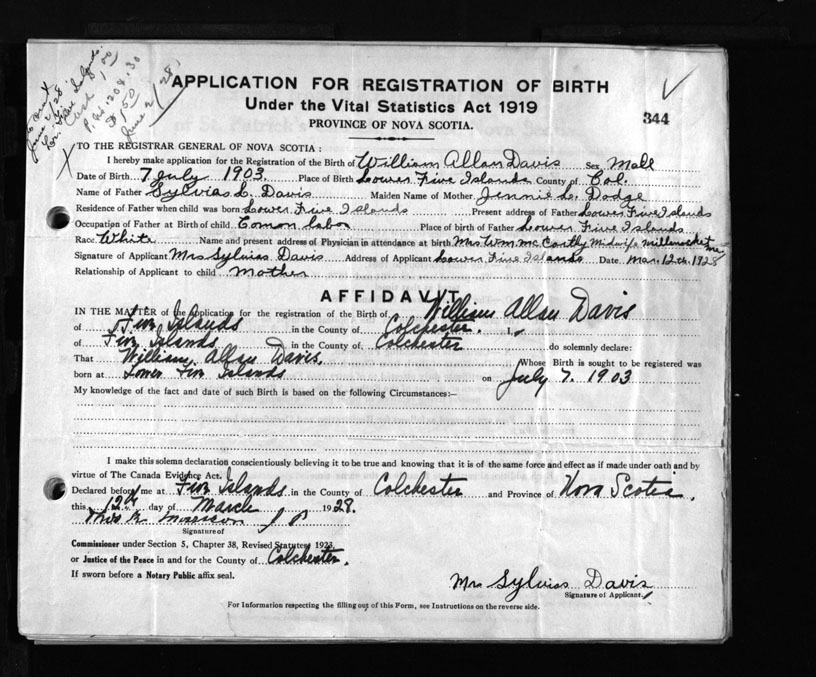 June 2/28
Cash 1.00
P.O. 1204.30
.50
June 2/28
APPLICATION FOR REGISTRATION OF BIRTH
Under the Vital Statistics Act 1919
PROVINCE OF NOVA SCOTIA.
344
TO THE REGISTRAR GENERAL OF NOVA SCOTIA:
I hereby make application for the Registration of the Birth of William Allan Davis Sex Male
Date of Birth 7 July 1903 Place of Birth Lower Five Islands County of Col.
Name of Father Sylvias L. Davis Maiden Name of Mother Jennie L. Dodge
Residence of Father when child was born Lower Five Islands Present address of Father Lower Five Islands
Occupation of Father at Birth of child Comon labor Place of birth of Father Lower Five Islands
Race White Name and present address of Physician in attendance at birth Mrs Wm Mc Cartly Midwife millnocket me
Signature of Applicant Mrs Sylvias Davis Address of Applicant Lower Five Islands Date Mar. 12th. 1928
Relationship of Applicant to child Mother
AFFIDAVIT
IN THE MATTER of the Application for the registration of the Birth of William Allan Davis
of Five Islands in the County of Colchester. I,
of Five Islands in the County of Colchester do solemnly declare:
That William Allan Davis. Whose Birth is sought to be registered was
born at Lower Five Islands on July 7. 1903
My knowledge of the fact and date of such Birth is based on the following Circumstances:—
I make this solemn declaration conscientiously believing it to be true and knowing that it is of the same force and effect as if made under oath and by
virtue of The Canada Evidence Act.
Declared before me at Five Islands in the County of Colchester and Province of Nova Scotia.
this 12th day of March 1928.
Morrison J P
Signature of
Commissioner under Section 5, Chapter 38, Revised Statutes 1923,
or Justice of the Peace in and for the County of Colchester.
If sworn before a Notary Public affix seal.
Mrs Sylvias Davis
Signature of Applicant.
For Information respecting the filling out of this Form, see Instructions on the reverse side.